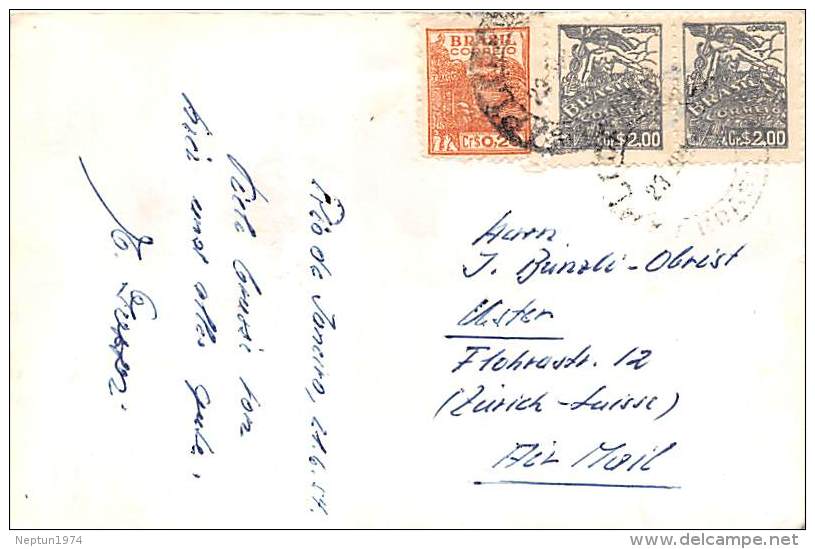 BRASIL
CORREIO
Cr$0,20
BRASIL
CORREIO
Cr$2,00
BRASIL
CORREIO
Cr$2,00
Rio de Janeiro, 21.6.54.
Viele Grüsse von
hier und alles gute,
E.
Herrn
J. Bünzli-Obrist
Uster
Florastr. 12
(Zürich-Suisse)
Air Mail
Neptun1974
delcampe.net